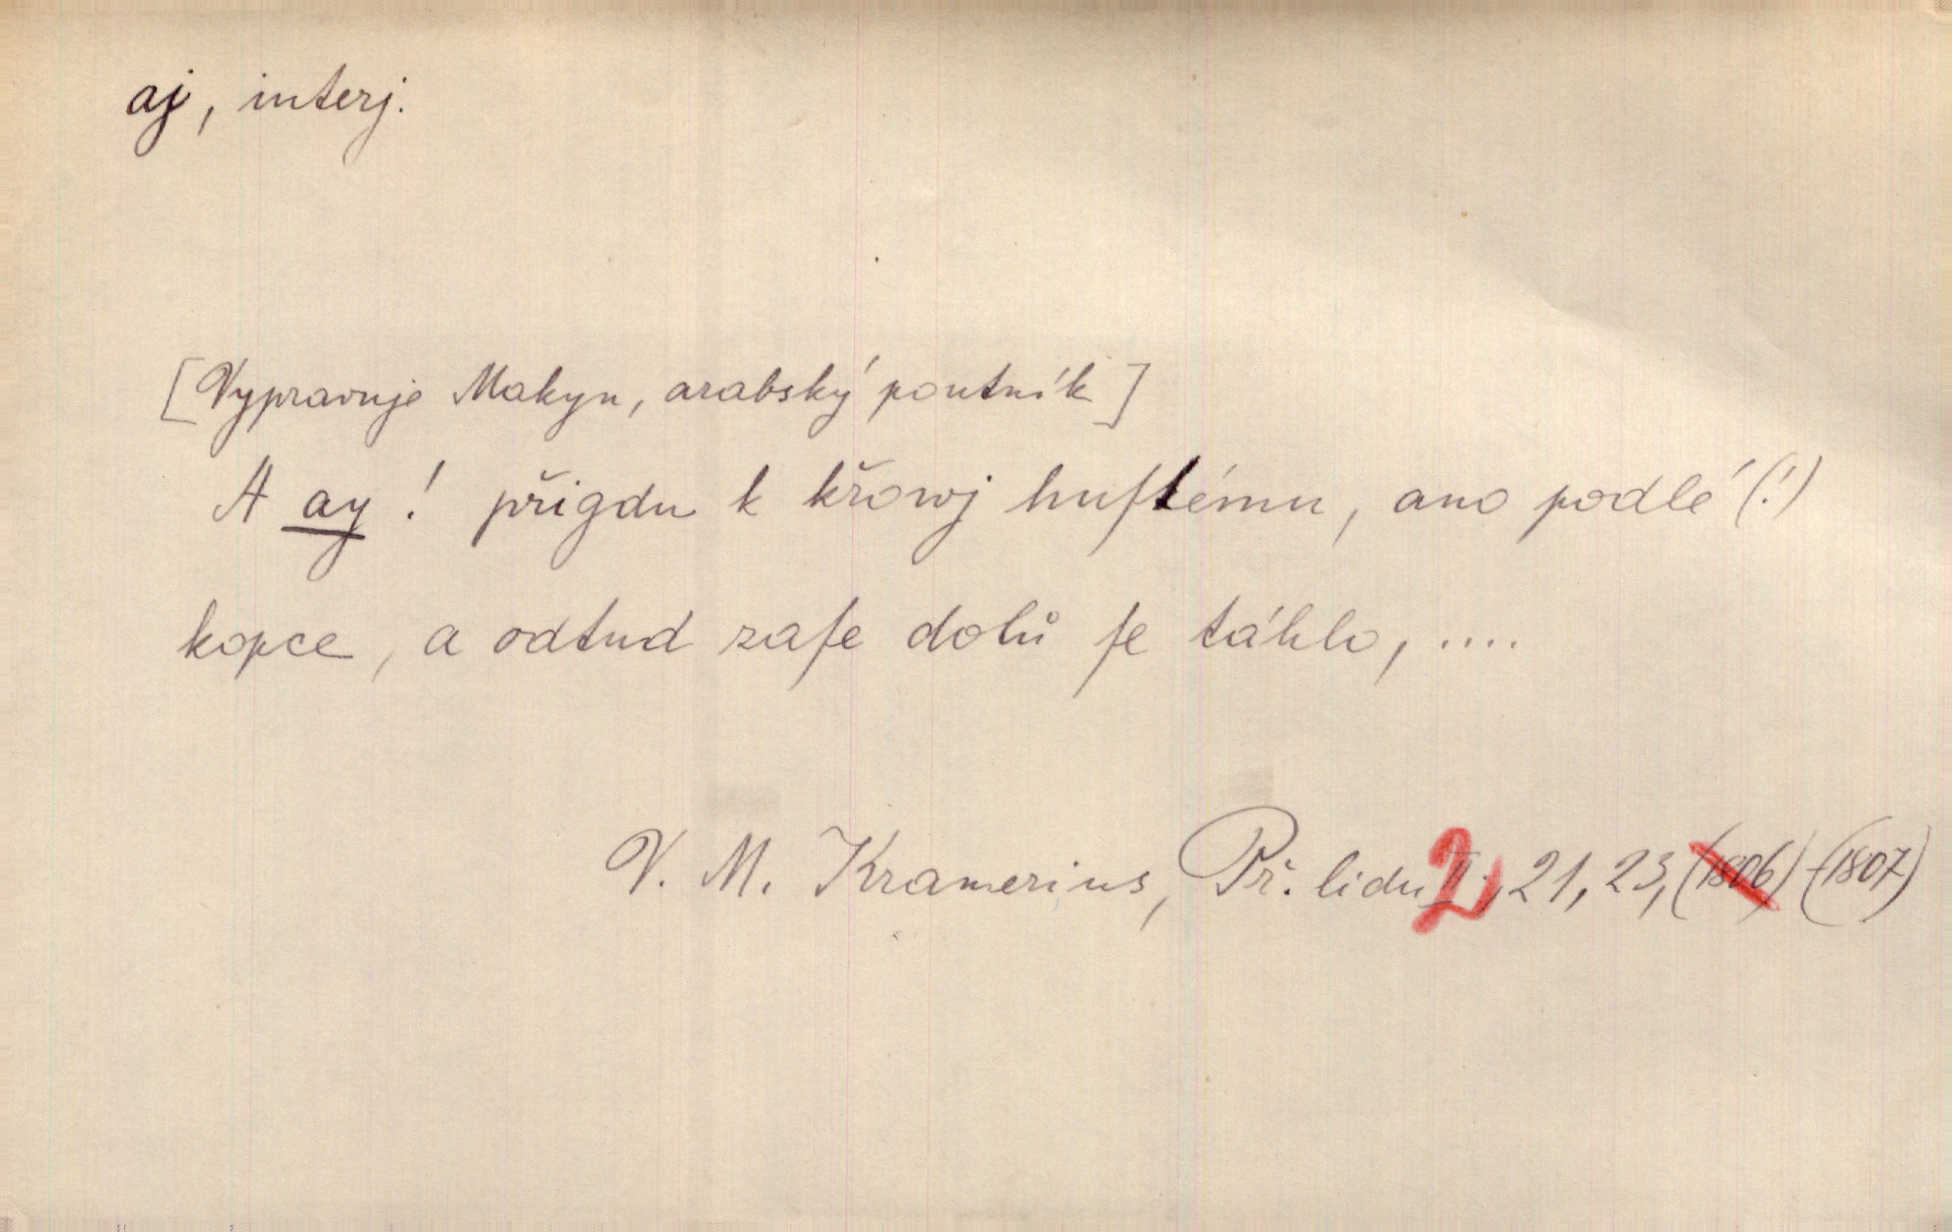 aj, interj.
[Vypravuje Makyn, arabský poutník]
A ay! přigdu k křowj huſtému, ano podlé (!)
kopce, a odtud zaſe dolů ſe táhlo, ....
V. M. Kramerius, Př. lidu 2, 21, 23, (1806) (1807)